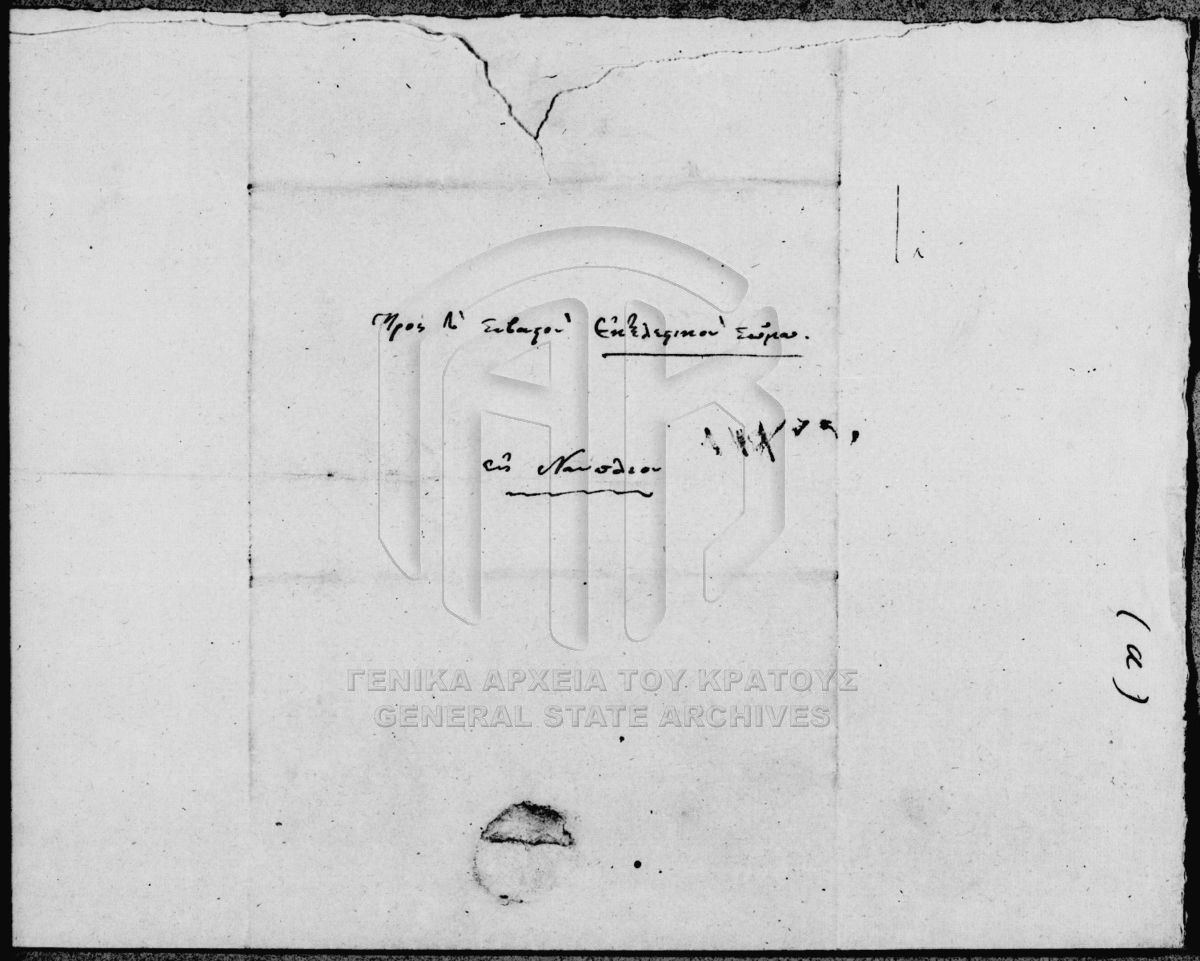 Πρὸς τὸ Σεβαστὸν Ἐκτελεστικὸν Σῶμα.
εἰς Ναύπλιον
(α)
ΓΕΝΙΚΑ ΑΡΧΕΙΑ ΤΟΥ ΚΡΑΤΟΥΣ
GENERAL STATE ARCHIVES